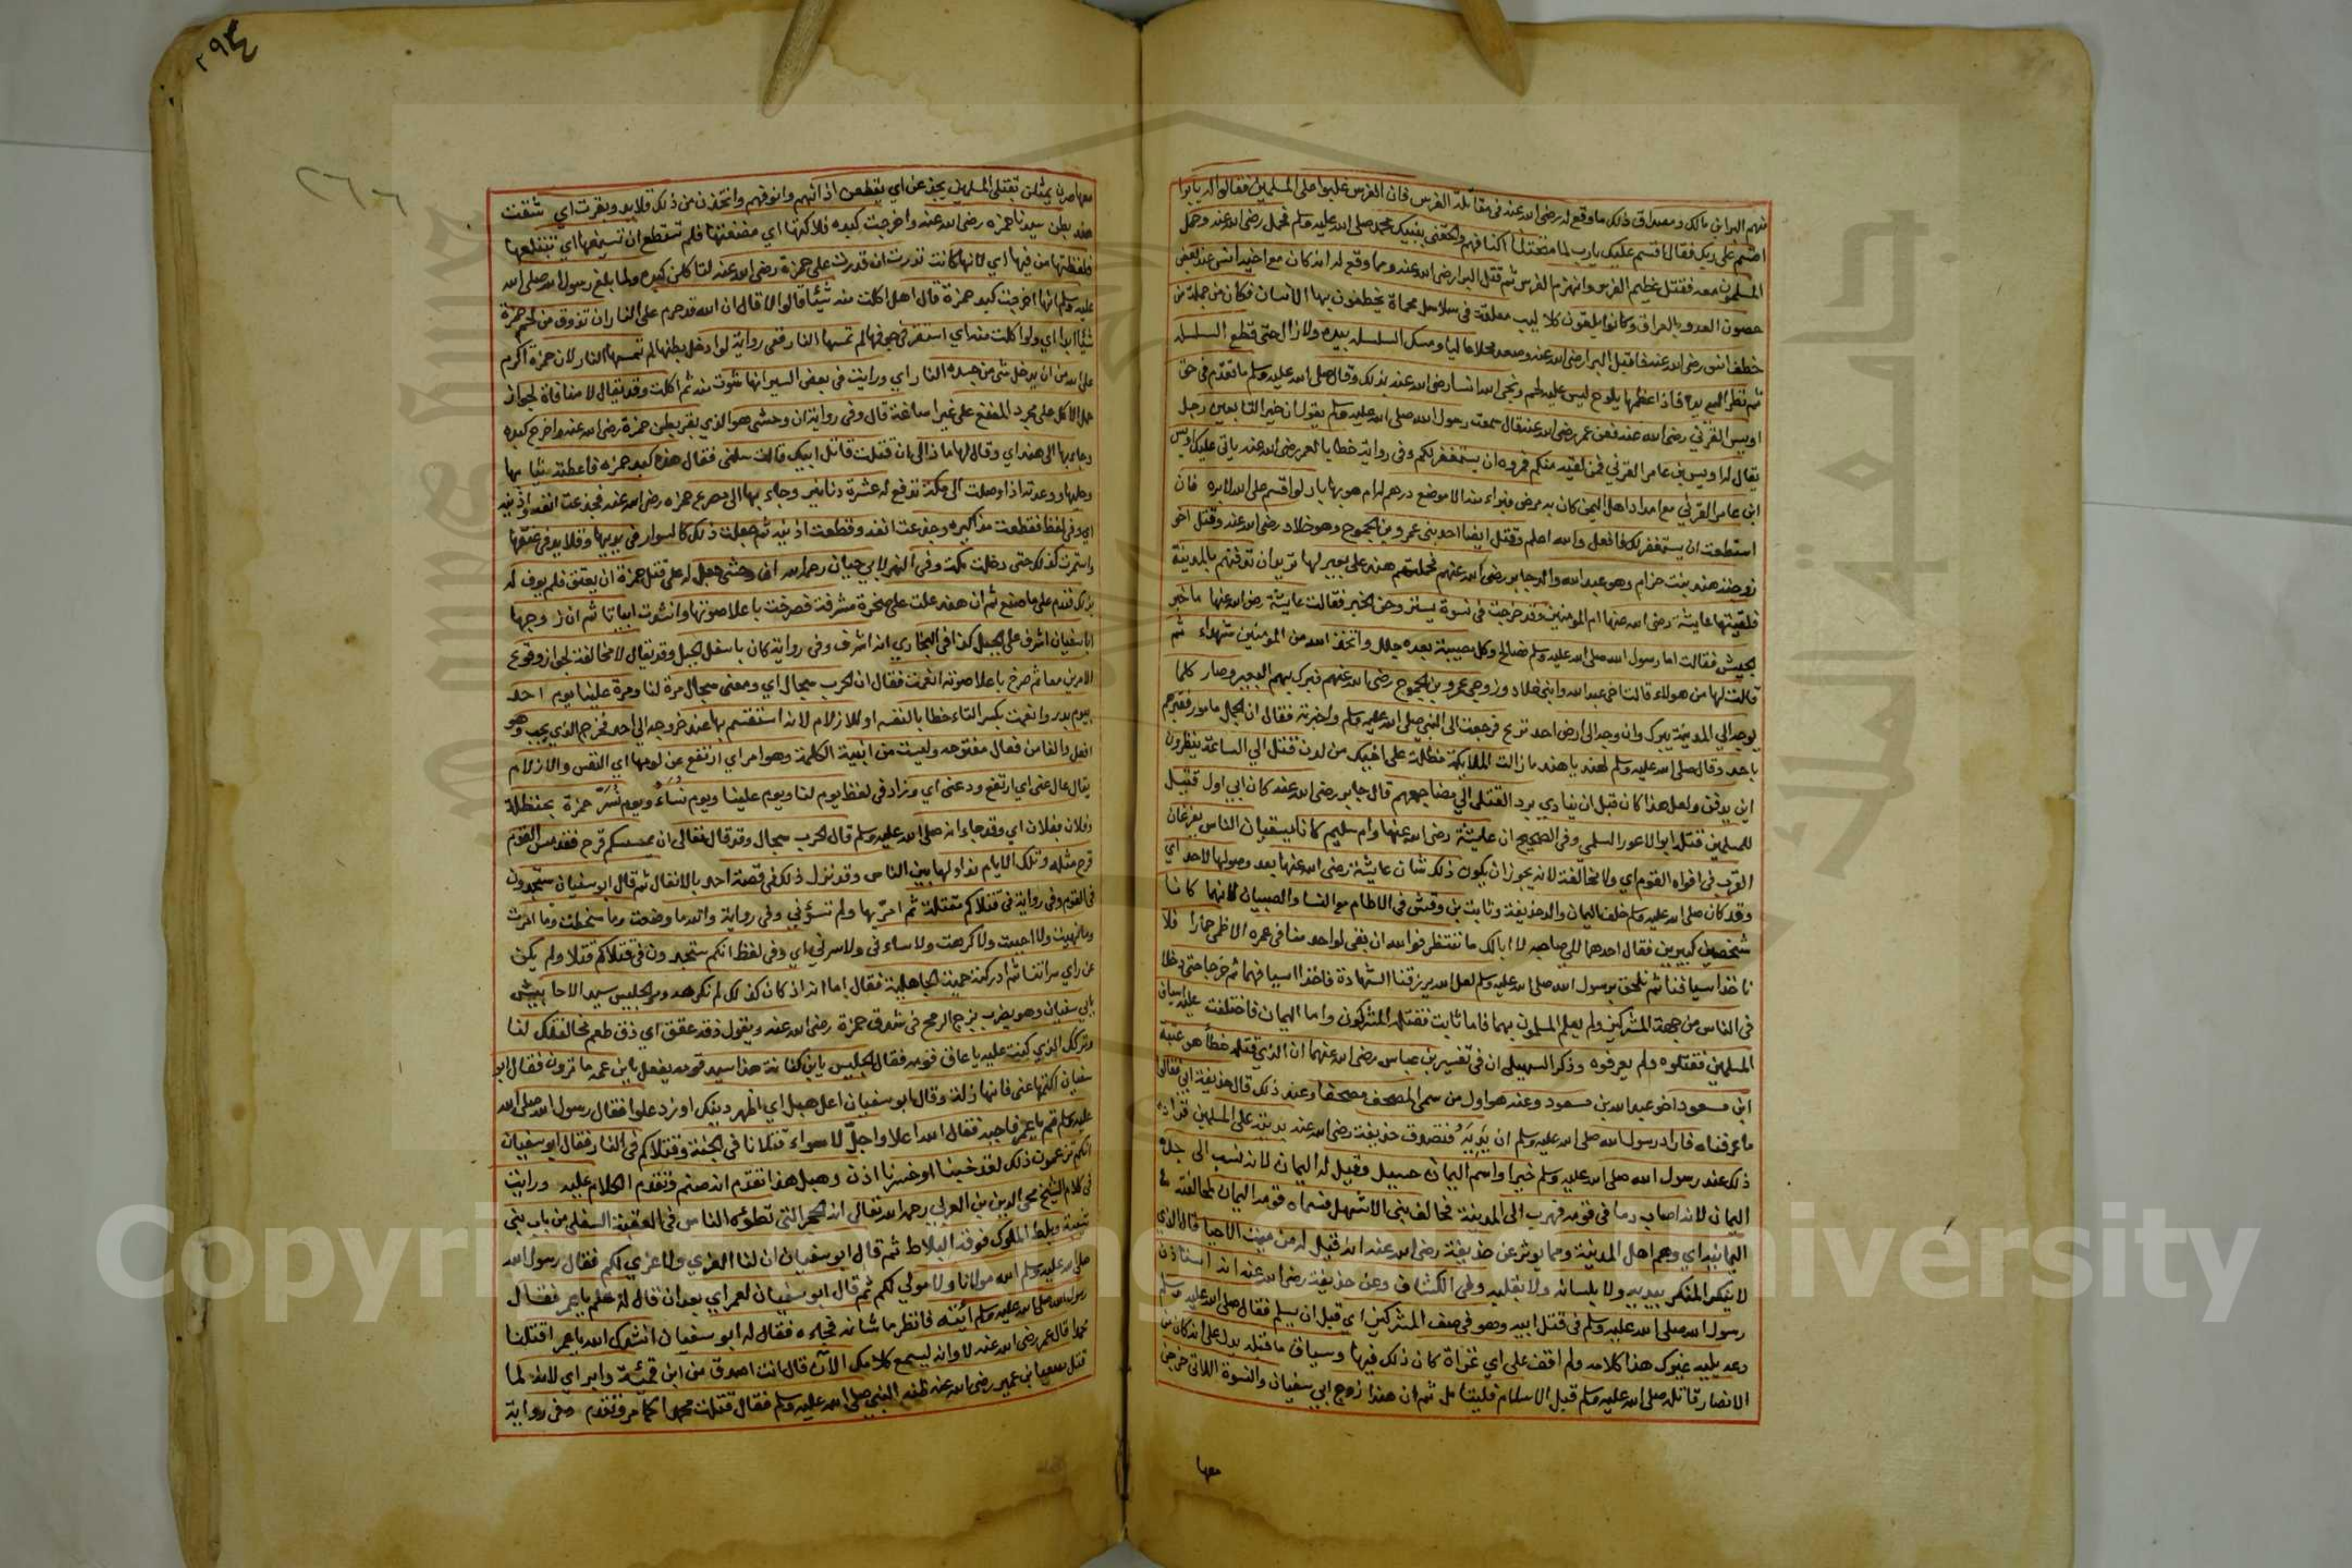 منهم البرا بن مالك ومصداق ذلك ما وقع له رضي الله عنه في مقاتلة الفرس فان الفرس غلبوا على المسلمين فقالوا له يا برا
اقسم على ربك فقال اقسم عليك يا رب لما منحتنا اكتافهم والحقتني بنبيك محمد صلى الله عليه وسلم فحمل رضي الله عنه وحمل
المسلمون معه فقتل عظيم الفرس وانهزم الفرس ثم قتل البرا رضي الله عنه ومما وقع له انه كان مع اخيه انس عند بعض
حصون العدو بالعراق وكانوا يلقون كلاليب معلقة في سلاسل محماة يخطفون بها الانسان فكان من جملة من
خطف انس رضي الله عنه فاقبل البرا رضي الله عنه وصعد محلا عاليا ومسك السلسله بيده ولا زال حتى قطع السلسله
ثم نظر الى يده فاذا عظمها يلوح ليس عليه لحم ونجى الله انسا رضي الله عنه بذلك وقال صلى الله عليه وسلم ما تقدم في حق
اويس القرني رضي الله عنه فعن عمر رضي الله عنه قال سمعت رسول الله صلى الله عليه وسلم يقول ان خير التابعين رجل
يقال له اويس بن عامر القرني فمن لقيه منكم فمروه ان يستغفر لكم وفي رواية خطابا لعمر رضي الله عنه ياتي عليك اويس
ابن عامر القرني مع امداد اهل اليمن كان به برص فبراء منه الا موضع درهم له ام هو بها بار لو اقسم على الله لابره فان
استطعت ان يستغفر لك فافعل والله اعلم وقتل ايضا احد بني عمرو بن الجموح وهو خلاد رضي الله عنه وقتل اخو
زوجته هند بنت حزام وهو عبد الله والد جابر رضي الله عنهم فحملتهم هند على بعير لها تريد ان تدفنهم بالمدينة
فلقيتها عايشة رضي الله عنها ام المومنين وقد خرجت في نسوة يستروحن الخبر فقالت عايشة رضي الله عنها ما خبر
الجيش فقالت اما رسول الله صلى الله عليه وسلم فصالح وكل مصيبة بعده جلل واتخذ الله من المومنين شهداء ثم
قالت لها من هولاء قالت اخي عبد الله وابني خلاد وزوجي عمرو بن الجموح رضي الله عنهم فبرك بهم البعير وصار كلما
يوجه الي المدينة يبرك وان وجه الى ارض احد نزع فرجعت الى النبي صلى الله عليه وسلم واخبرته فقال ان الجمل مامور فقبرهم
باحد وقال صلى الله عليه وسلم لهند يا هند ما زالت الملايكة مظلة على اخيك من لدن قتل الي الساعة ينظرون
اين يدفن ولعل هذا كان قبل ان ينادي برد القتلى الي مضاجعهم قال جابر رضي الله عنه كان ابي اول قتيل
للمسلمين قتله ابو الاعور السلمي وفي الصحيح ان عايشة رضي الله عنها وام سليم كانا يسقيان الناس يفرغان
القرب في افواه القوم اي ولا مخالفة لانه يجوز ان يكون ذلك شان عايشة رضي الله عنها بعد وصولها لاحد اي
وقد كان صلى الله عليه وسلم خلف اليمان والد حذيفة وثابت بن وقش في الاطام مع النسا والصبيان لانهما كانا
شيخين كبيرين فقال احدهما لصاحبه لا ابا لك ما ننتظر فوالله ان بقى لواحد منا في عمره الا ظمئ حمار ا فلا
ناخذ اسيافنا ثم نلحق برسول الله صلى الله عليه وسلم لعل الله يرزقنا الشهادة فاخذا اسيافهما ثم خرجا حتى دخلا
في الناس من جهة المشركين ولم يعلم المسلمون بهما فاما ثابت فقتله المشركون واما اليمان فاختلفت عليه اسياف
المسلمين فقتلوه ولم يعرفوه وذكر السهيلى ان في تفسير بن عباس رضي الله عنهما ان الذي قتله خطأ هو عتبة
ابن مسعود اخو عبد الله بن مسعود وعتبه هو اول من سمى المصحف مصحفا وعند ذلك قال حذيفة ابي فقالوا
ما عرفناه فاراد رسول الله صلى الله عليه وسلم ان يديه فتصدق حذيفة رضي الله عنه بديته على المسلمين فزاده
ذلك عند رسول الله صلى الله عليه وسلم خيرا واسم اليمان حسيل وقيل له اليمان لانه نسب الى جده
اليمان لانه اصاب دما في قومه فهرب الى المدينة فحالف بني الاشهل فسماه قومه اليمان لمحالفته
اليمانيه اي وهم اهل المدينة ومما يوثر عن حذيفة رضي الله عنه انه قيل له من ميت الاحيا قال الذي
لا ينكر المنكر بيده ولا بلسانه ولا بقلبه وفي الكشاف وعن حذيفة رضي الله عنه انه استاذن
رسول الله صلى الله عليه وسلم في قتل ابيه وهو في صف المشركين اي قبل ان يسلم فقال صلى الله عليه وسلم
دعه يليه غيرك هذا كلامه ولم اقف على اي غزاة كان ذلك فيها وسياق ما قتله يدل على انه كان من
الانصار قاتله صلى الله عليه وسلم قبل الاسلام فليتامل ثم ان هندا زوج ابي سفيان والنسوة اللاتي خرجن
معها
٢٩٤
٢٦٦
معها صرن يمثلن بقتلى المسلمين يجدعن اي يقطعن اذانهم وانوفهم واتخذن من ذلك قلايد وبقرت اي شقت
هند بطن سيدنا حمزه رضي الله عنه واخرجت كبده فلاكتها اي مضغتها فلم تستطع ان تسيغها اي تبتلعها
فلفظتها من فيها اي لانها كانت نذرت ان قدرت على حمزة رضي الله عنه لتاكلن كبده ولما بلغ رسول الله صلى الله
عليه وسلم انها اخرجت كبد حمزة قال هل اكلت منه شيئا قالوا لا قال ان الله قد حرم على النار ان تذوق من لحم حمزة
شيئا ابدا اي ولو اكلت منه اي استقر في جوفها لم تمسها النار ففي رواية لو ادخل بطنها لم تمسها النار لان حمزة اكرم
على الله من ان يدخل شئ من جسده النار اي ورايت في بعض السير انها شوت منه ثم اكلت وقد يقال لا منافاة لجواز
حمل الاكل على مجرد المضغ على غير اساغة قال وفي رواية ان وحشى هو الذي بقر بطن حمزة رضي الله عنه واخرج كبده
وجاء بها الى هند اي وقال لها ماذا لي ان قتلت قاتل ابيك قالت سلبي فقال هذه كبد حمزه فاعطته ثيابها
وحليها ووعدته اذا وصلت الى مكة تدفع له عشرة دنانير وجاء بها الى مصرع حمزه رضي الله عنه فجدعت انفه واذنيه
اي وفي لفظ فقطعت مذاكيره وجدعت انفه وقطعت اذنيه ثم جعلت ذلك كالسوار في يديها وقلايد في عنقها
واستمرت كذلك حتى دخلت مكة وفي النهر لابي حيان رحمه الله ان وحشى جعل له على قتل حمزة ان يعتق فلم يوف له
بذلك فندم على ما صنع ثم ان هند علت على صخرة مشرفة فصرخت باعلا صوتها وانشدت ابياتا ثم ان زوجها
ابا سفيان اشرف على الجبل كذا في البخاري انه اشرف وفي رواية كان باسفل الجبل وقد يقال لا مخالفة لجواز وقوع
الامرين معا ثم صرخ باعلا صوته انعمت فقال ان الحرب سجال اي ومعنى سجال مرة لنا ومرة علينا يوم احد
بيوم بدر وانعمت بكسر التاء خطابا لنفسه او للازلام لانه استقسم بها عند خروجه الي احد فخرج الذي يحب وهو
افعل والفا من فعال مفتوحه وليست من ابنية الكلمة وهو امر اي ارتفع عن لومها اي النفس والازلام
يقال عال عني اي ارتفع ودعني اي وزاد في لفظ يوم لنا ويوم علينا ويوم نُسَاءُ ويوم نُسَرّ حمزة بحنظلة
وفلان بفلان اي وقد جاء انه صلى الله عليه وسلم قال الحرب سجال وقد قال تعالى ان يمسسكم قرح فقد مس القوم
قرح مثله وتلك الايام نداولها بين الناس وقد نزل ذلك في قصة احد بالاتفال ثم قال ابو سفيان ستجدون
في القوم وفي رواية في قتلاكم مثلة ثم امر بها ولم تسؤني وفي رواية والله ما رضيت وما سخطت وما امرت
وما نهيت ولا احببت ولا كرهت ولا ساء ني ولا سرني اي وفي لفظ انكم ستجدون في قتلاكم مثلا ولم يكن
عن راي سراتنا ثم ادركته حمية الجاهلية فقال اما انه اذ كان كذلك لم نكرهه ومر الحليس سيد الاحابيش
بابي سفيان وهو يضرب بزج الرمح في شدق حمزة رضي الله عنه ويقول ذق عقق اي ذق طعم مخالفتك لنا
وتركك الذي كنت عليه يا عاق قومه فقال الحليس يا بني كنانة هذا سيد قومه يفعل بابن عمه ما ترون فقال ابو
سفيان اكتمها عني فانها زلة وقال ابو سفيان اعل هبل اي اظهر دينك او زد علوا فقال رسول الله صلى الله
عليه وسلم قم يا عمر فاجبه فقال الله اعلا واجلّ لا سواء قتلانا في الجنة وقتلاكم في النار فقال ابو سفيان
انكم تزعمون ذلك لقد خبنا اذن وخسرنا اذن وهبل هذا تقدم انه صنم وتقدم الكلام عليه ورايت
في كلام الشيخ محي الدين بن العربي رحمه الله تعالى انه الحجر التي تطؤه الناس في العقبة السفلى من باب بني
شيبة وبلط الملوك فوقه البلاط ثم قال ابو سفيان ان لنا العزي ولا عزي لكم فقال رسول الله
صلى الله عليه وسلم الله مولانا ولا مولي لكم ثم قال ابو سفيان لعمر اي بعد ان قال له هلم يا عمر فقال
رسول الله صلى الله عليه وسلم ائته فانظر ما شانه فجاءه فقال له ابو سفيان انشدك الله يا عمر اقتلنا
محمدا قال عمر رضي الله عنه لا وانه ليسمع كلامك الآن قال انت اصدق من ابن قمئة وابر اي لانه لما
قتل مصعب ابن عمير رضي الله عنه ظنه النبي صلى الله عليه وسلم فقال قتلت محمدا كما مر وتقدم وفي رواية
جامعة الملك سعود
King Saud University
Copyright © King Saud University